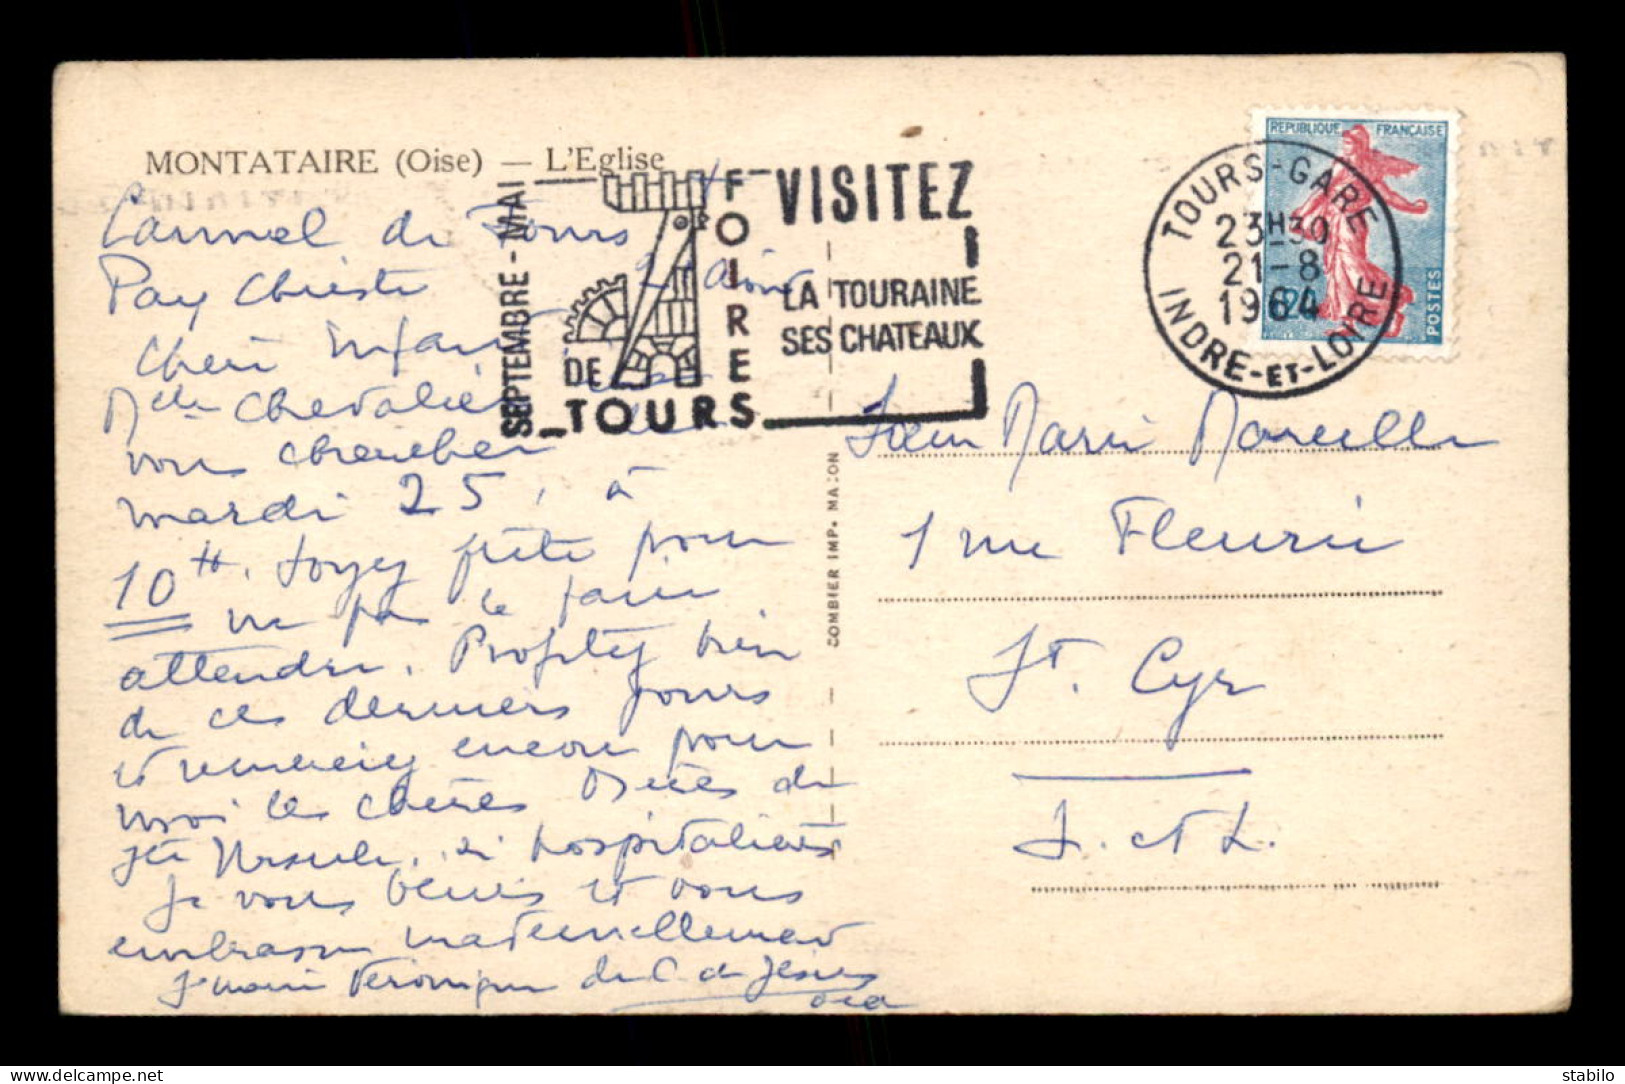 MONTATAIRE (Oise) — L'Eglise
Carmel de Tours
Pax Christi
21 Août
Chère Enfant,
Melle Chevalier
vous chercher
mardi 25, à
10 H. Soyez prête pour
ne pas le faire
attendre. Profitez bien
de ces derniers jours
et remerciez encore pour
moi les chères Mères de
Ste Ursule, si hospitalières
Je vous bénis et vous
embrasse maternellement
Sr Marie Véronique du C. de Jésus
ocd
SEPTEMBRE - MAI
FOIRES
DE TOURS
VISITEZ
LA TOURAINE
SES CHATEAUX
COMBIER IMP. MACON
REPUBLIQUE FRANÇAISE
POSTES
TOURS-GARE
23H30
21-8
1964
INDRE-ET-LOIRE
Soeur Marie Marcelle
1 rue Fleurie
St. Cyr
I. et L.
stabilo
delcampe.net